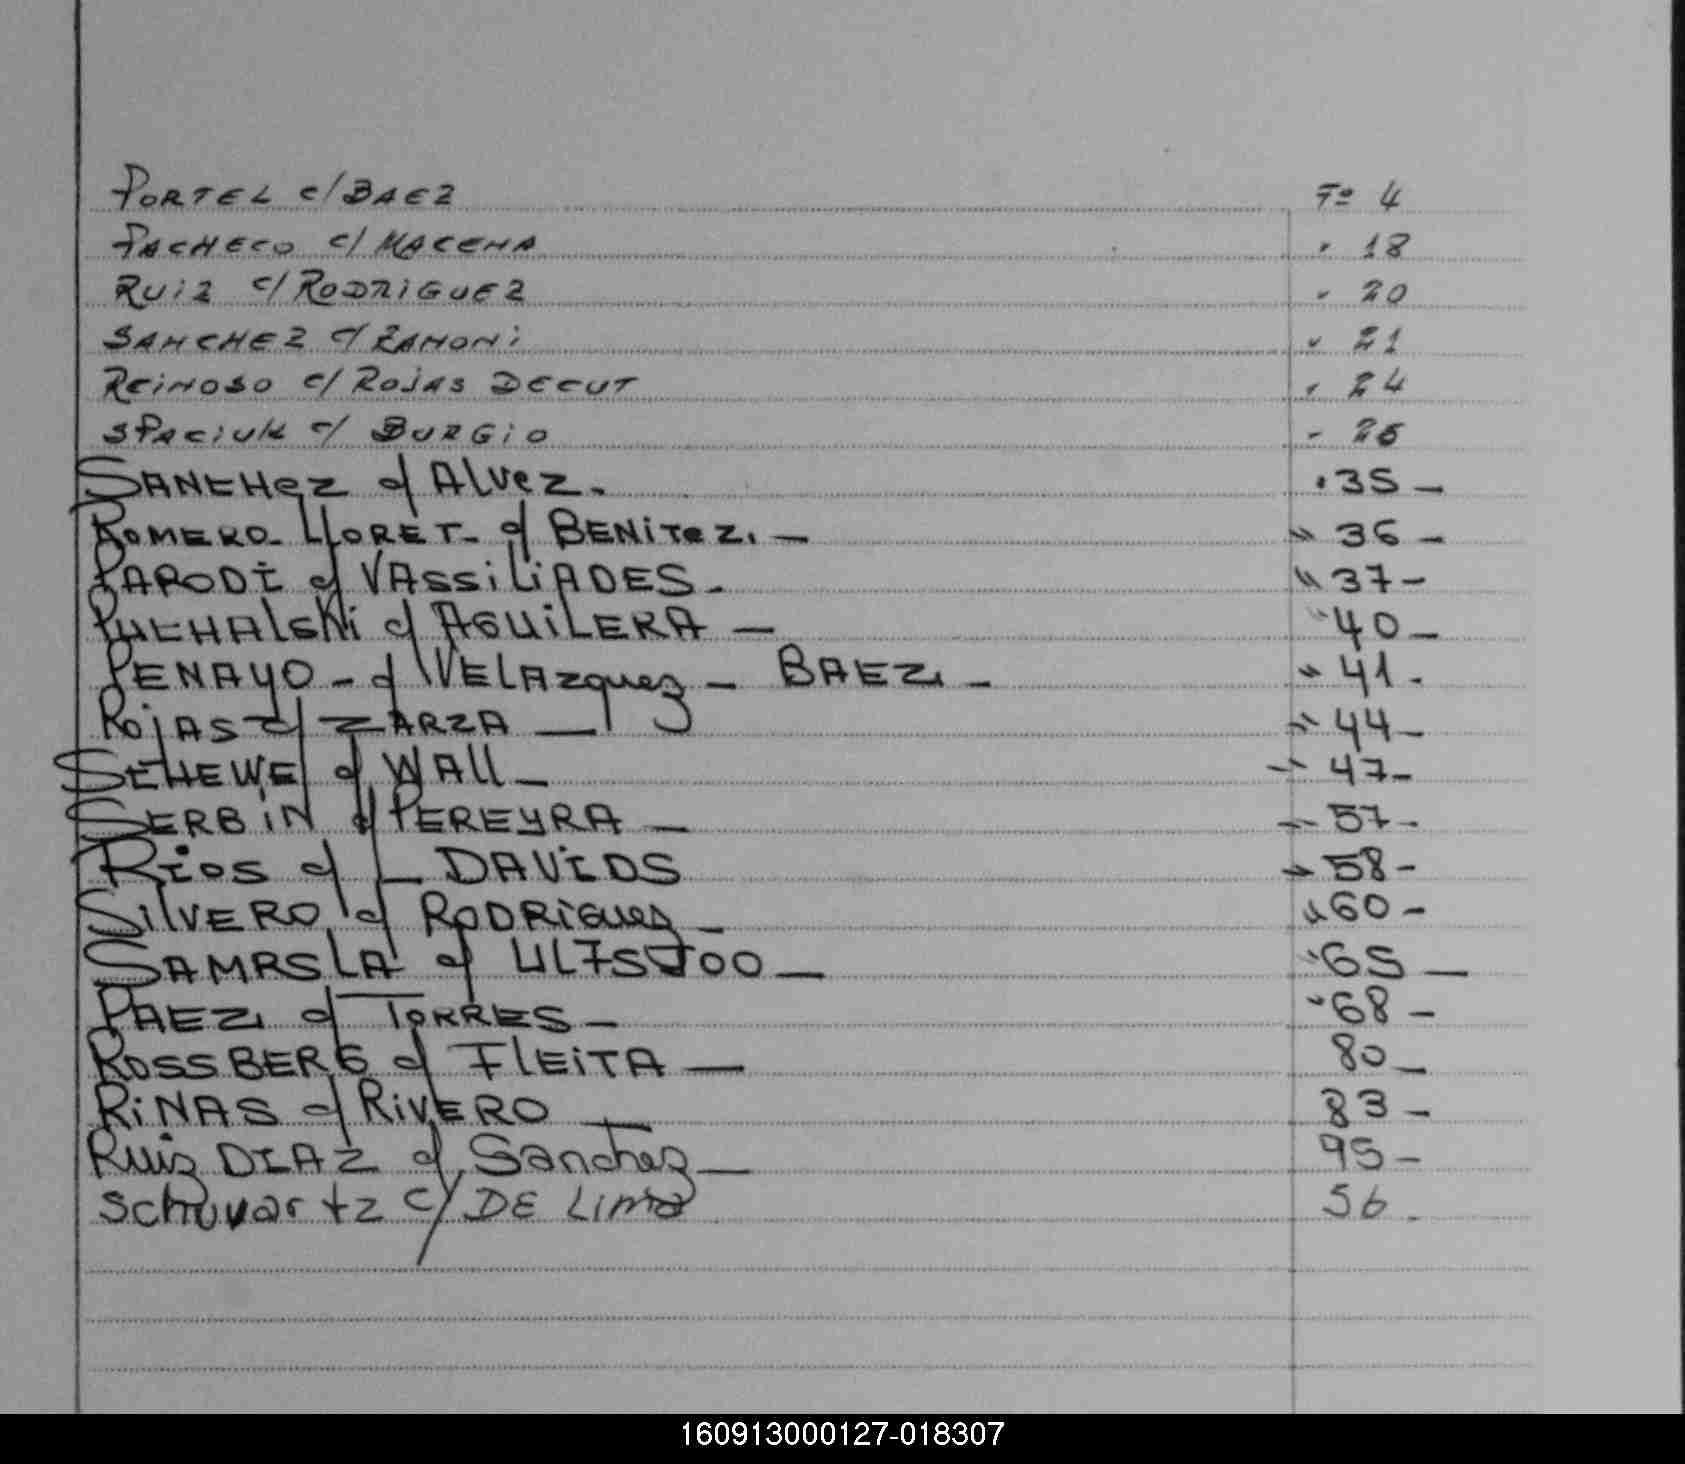 PORTEL c/ BAEZ Fº 4
PACHECO c/ MACENA " 18
RUiZ c/ RODRiGUEZ " 20
SANCHEZ c/ ZANONi " 21
REiNOSO c/ ROJAS DECUT " 24
SPACiUK c/ BURGiO " 26
SANCHez c/ Alvez. " 35 -
ROMERO LLORET - c/ BENiTez. - " 36 -
PARODI c/ VASSiLiADES - " 37 -
PUCHAlSKi c/ AGUiLERA - " 40 -
PENAYO - c/ VELAzquez - BAEZ. - " 41 -
ROjAS c/ ZARZA - " 44 -
SCHEWE c/ WAll - " 47 -
SERBiN c/ PEREYRA - " 57 -
RIOS c/ DAVIDS " 58 -
SilVERO c/ RODRiGuez - " 60 -
c/ " 65 -
PAEZ c/ TORRES - " 68 -
ROSSBERG c/ FlEiTA - 80 -
RiNAS c/ RiVERO 83 -
Ruiz DIAZ c/ Sanchez - 95 -
Schuvartz c/ DE Lima 56 -
160913000127-018307